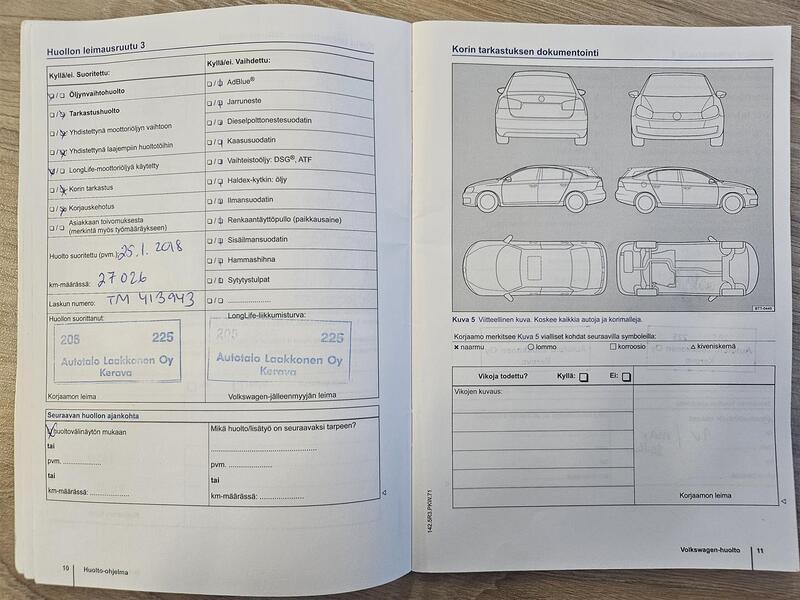 Huollon leimausruutu 3
Kyllä/ei. Suoritettu:
Öljynvaihtohuolto
Tarkastushuolto
Yhdistettynä moottoriöljyn vaihtoon
Yhdistettynä laajempiin huoltotöihin
LongLife-moottoriöljyä käytetty
Korin tarkastus
Korjauskehotus
Asiakkaan toivomuksesta
(merkintä myös työmääräykseen)
Huolto suoritettu (pvm.): 25.1.2018
km-määrässä: 27026
Laskun numero: TM 413943
Huollon suorittanut:
205 225
Autotalo Laakkonen Oy
Kerava
Korjaamon leima
Kyllä/ei. Vaihdettu:
AdBlue®
Jarruneste
Dieselpolttonestesuodatin
Kaasusuodatin
Vaihteistoöljy: DSG®, ATF
Haldex-kytkin: öljy
Ilmansuodatin
Renkaantäyttöpullo (paikkausaine)
Sisäilmansuodatin
Hammashihna
Sytytystulpat
......................
LongLife-liikkumisturva:
205 225
Autotalo Laakkonen Oy
Kerava
Volkswagen-jälleenmyyjän leima
Seuraavan huollon ajankohta
huoltovälinäytön mukaan
tai
pvm. ...................
tai
km-määrässä: ...................
Mikä huolto/lisätyö on seuraavaksi tarpeen?
pvm. ...................
tai
km-määrässä: ...................
10 Huolto-ohjelma
Korin tarkastuksen dokumentointi
BTT-0449
Kuva 5 Viitteellinen kuva. Koskee kaikkia autoja ja korimalleja.
Korjaamo merkitsee Kuva 5 vialliset kohdat seuraavilla symboleilla:
× naarmu ○ lommo □ korroosio △ kiveniskemä
Vikoja todettu? Kyllä: Ei:
Vikojen kuvaus:
Korjaamon leima
142.5R3.PKW.71
Volkswagen-huolto 11